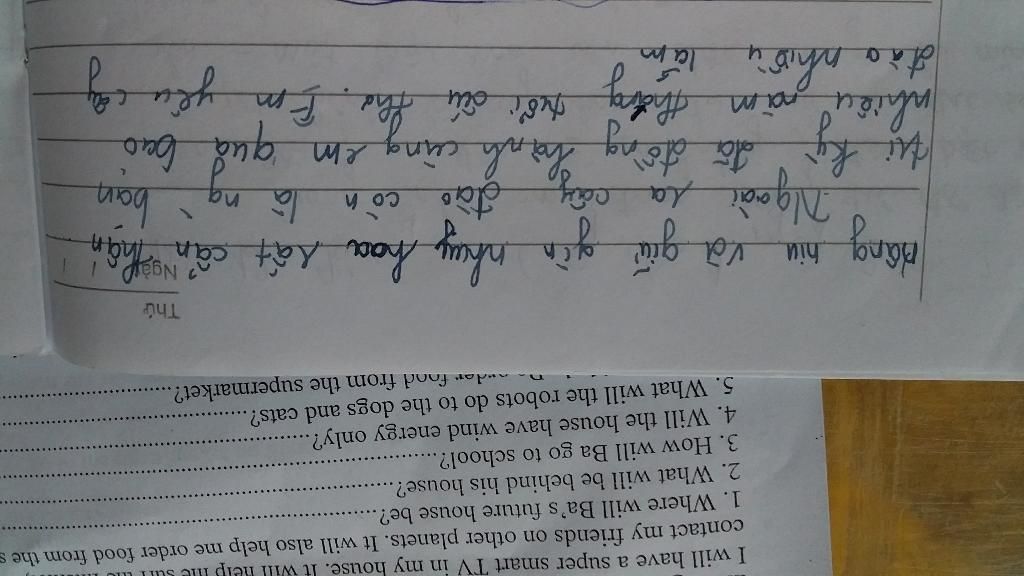 Thứ
Ngày / /
nâng niu và giữ gìn như hoa rất cẩn thận
Ngoài ra cây đào còn là ng bạn
tri kỷ đã đồng hành cùng em qua bao
nhiêu năm tháng tuổi ấu thơ. Em yêu cây
đào nhiều lắm
I will have a super smart TV in my house. It will help me surf the
contact my friends on other planets. It will also help me order food from the s
1. Where will Ba's future house be?
2. What will be behind his house?
3. How will Ba go to school?
4. Will the house have wind energy only?
5. What will the robots do to the dogs and cats?
order food from the supermarket?